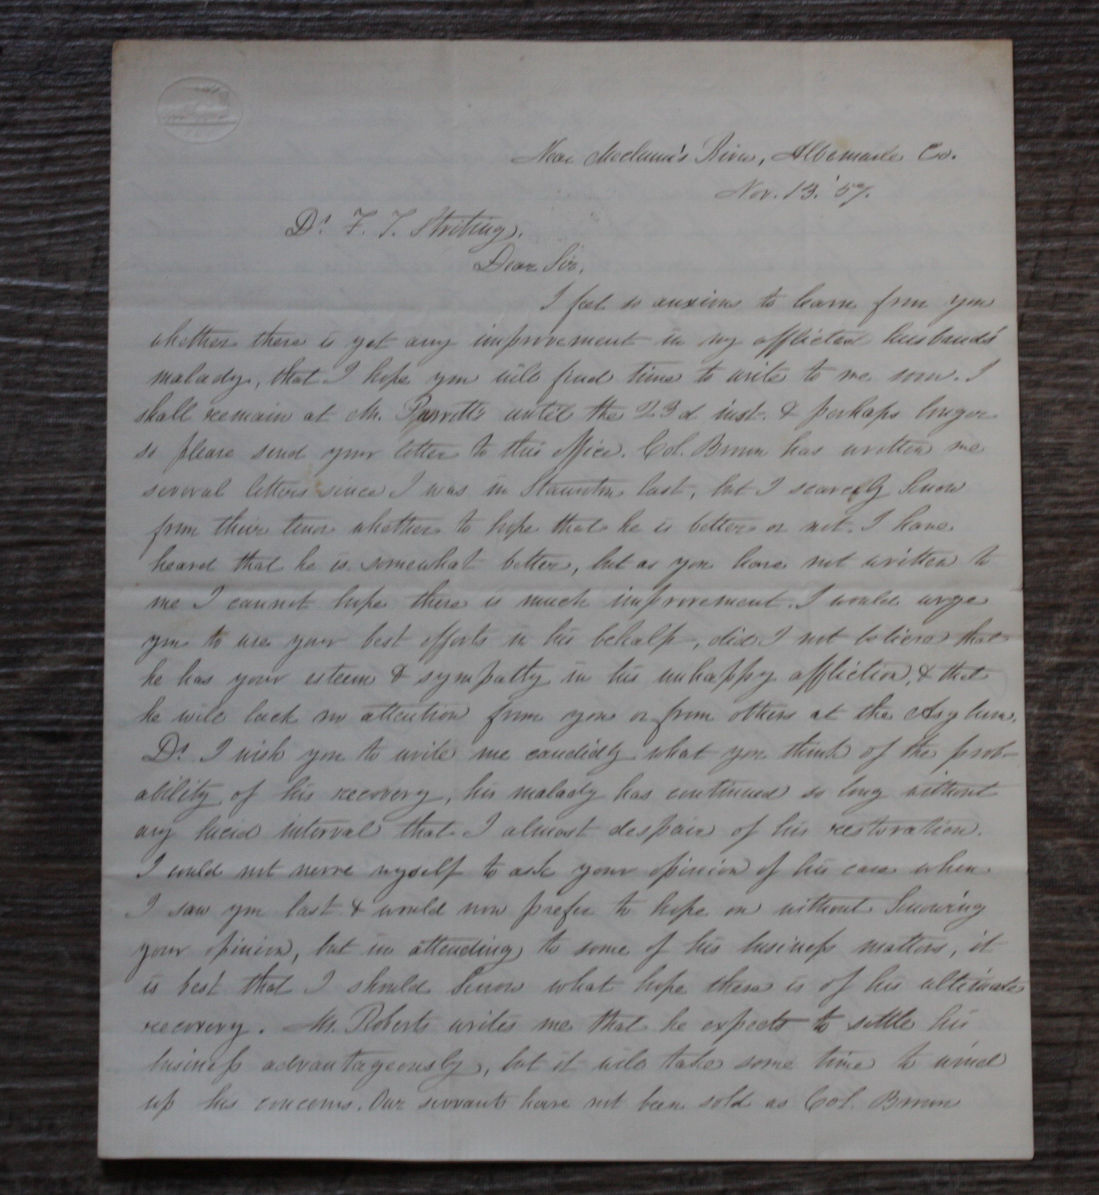 Near Mechum's River, Albemarle Co.
Nov. 13. '57.
Dr. F. T. Stribling,
Dear Sir,
I feel so anxious to learn from you
whether there is yet any improvement in my afflicted husband's
malady, that I hope you will find time to write to me soon. I
shall remain at Mr. Parrott's until the 23d inst. & perhaps longer
so please send your letter to this office. Col. Brown has written me
several letters since I was in Staunton last, but I scarcely know
from their tenor whether to hope that he is better or not. I have
heard that he is somewhat better, but as you have not written to
me I cannot hope there is much improvement. I would urge
you to use your best efforts in his behalf, did I not believe that
he has your esteem & sympathy in his unhappy affliction, & that
he will lack no attention from you or from others at the Asylum.
Dr. I wish you to write me candidly what you think of the prob-
ability of his recovery, his malady has continued so long without
any lucid interval that I almost despair of his restoration.
I could not nerve myself to ask your opinion of his case when
I saw you last & would now prefer to hope on without knowing
your opinion, but in attending to some of his business matters, it
is best that I should know what hope there is of his ultimate
recovery. Mr. Roberts writes me that he expects to settle his
business advantageously, but it will take some time to wind
up his concerns. Our servants have not been sold as Col. Brown